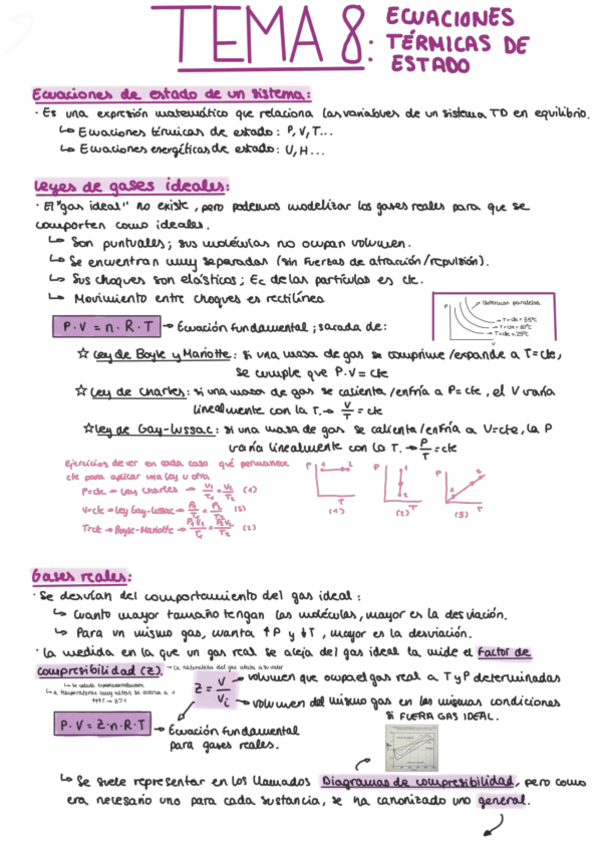 TEMA 8: ECUACIONES
TÉRMICAS DE
ESTADO
Ecuaciones de estado de un sistema:
· Es una expresión matemática que relaciona las variables de un sistema TD en equilibrio.
↳ Ecuaciones térmicas de estado: P, V, T...
↳ Ecuaciones energéticas de estado: U, H...
Leyes de gases ideales:
· El "gas ideal" no existe, pero podemos modelizar los gases reales para que se
comporten como ideales.
↳ Son puntuales; sus moléculas no ocupan volumen.
↳ Se encuentran muy separadas (sin fuerzas de atracción/repulsión).
↳ Sus choques son elásticos; Ec de las partículas es cte.
↳ Movimiento entre choques es rectilíneo
P · V = n · R · T → Ecuación fundamental; sacada de:
☆ Ley de Boyle y Mariotte: si una masa de gas se comprime/expande a T=cte,
se cumple que P·V = cte
☆ Ley de Charles: si una masa de gas se calienta/enfría a P=cte, el V varía
linealmente con la T. → V/T = cte
☆ Ley de Gay-Lussac: si una masa de gas se calienta/enfría a V=cte, la P
varía linealmente con la T. → P/T = cte
Ejercicios de ver en cada caso qué permanece
cte para aplicar una ley u otra
P=cte → Ley Charles → V1/T1 = V2/T2 (1)
V=cte → Ley Gay-Lussac → P1/T1 = P2/T2 (3)
T=cte → Boyle-Mariotte → (2)
P T (1) P T (2) P T (3)
Gases reales:
· Se desvían del comportamiento del gas ideal:
↳ Cuanto mayor tamaño tengan las moléculas, mayor es la desviación.
↳ Para un mismo gas, cuanta ↑P y ↓T, mayor es la desviación.
· La medida en la que un gas real se aleja del gas ideal la mide el factor de
compresibilidad (Z). → La naturaleza del gas afecta a su valor
Z = V/Vi → volumen que ocupa el gas real a T y P determinadas
→ volumen del mismo gas en las mismas condiciones
SI FUERA GAS IDEAL.
P · V = Z · n · R · T → Ecuación fundamental
para gases reales.
↳ Se suele representar en los llamados Diagramas de compresibilidad, pero como
era necesario uno para cada sustancia, se ha canonizado uno general.